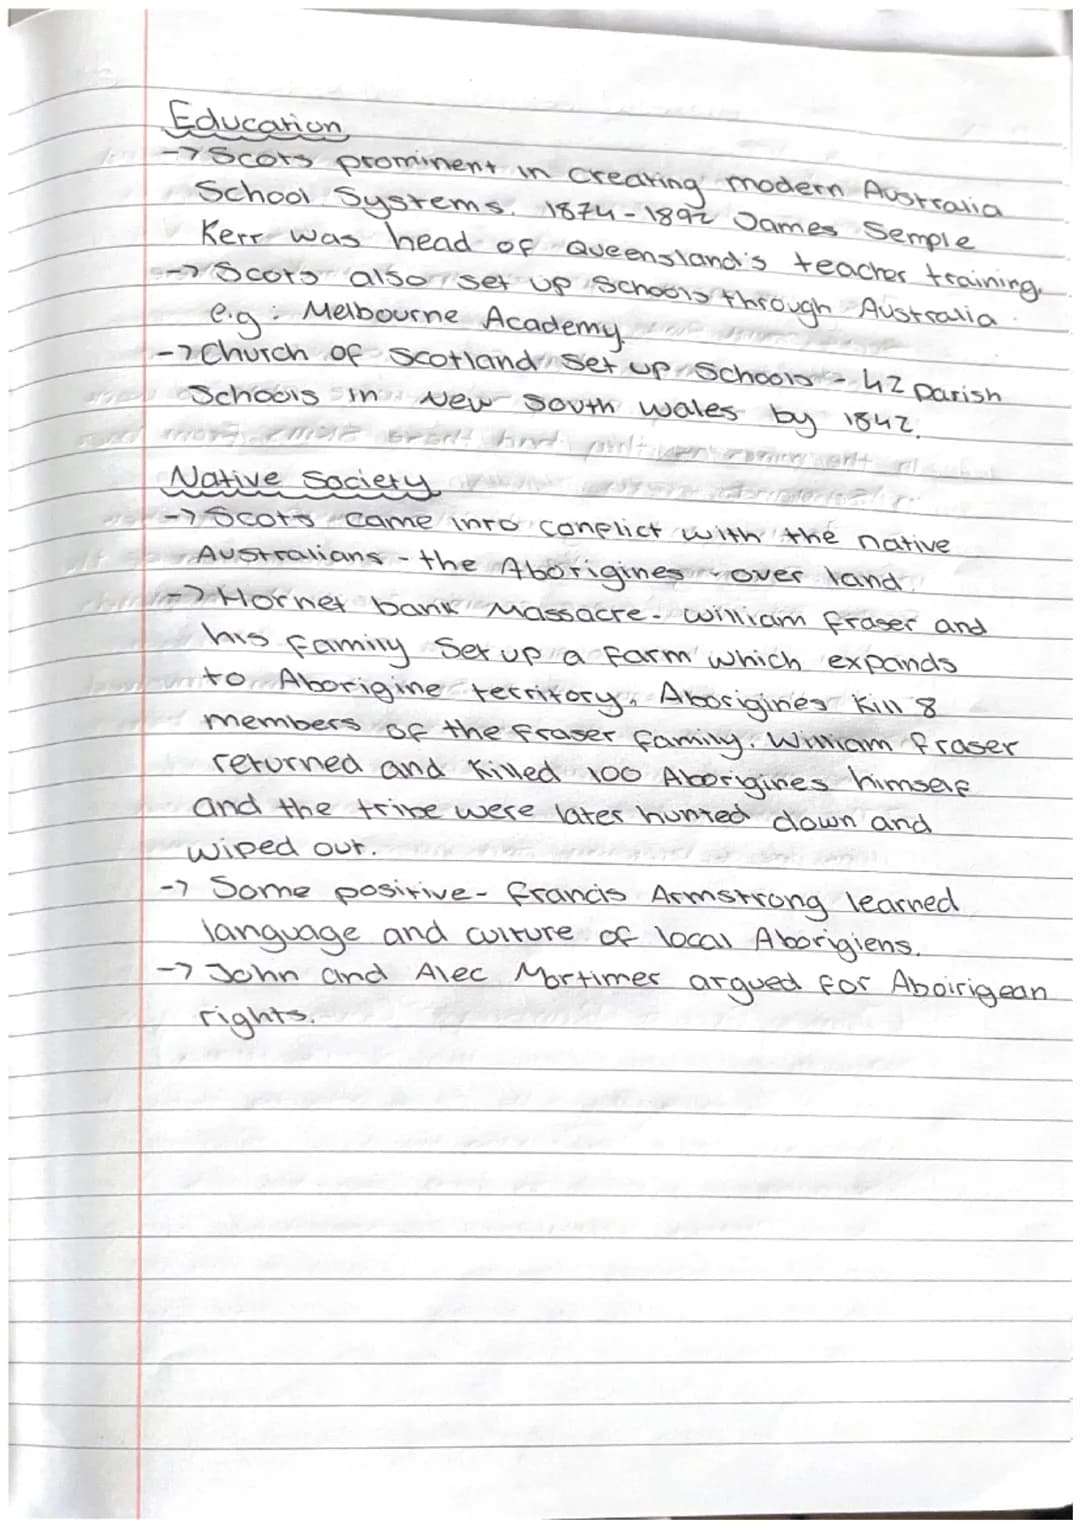 Education
-> Scots prominent in creating modern Australia
School Systems. 1874-1892 James Semple
Kerr was head of Queensland's teacher training.
-> Scots also set up schools through Australia.
e.g: Melbourne Academy.
-> Church of Scotland set up schools - 42 parish
Schools in New South Wales by 1842.
Native Society
-> Scots came into conflict with the native
Australians - the Aborigines - over land.
-> Hornet bank Massacre. William Fraser and
his family set up a farm which expands
to Aborigine territory. Aborigines kill 8
members of the Fraser family. William Fraser
returned and killed 100 Aborigines himself
and the tribe were later hunted down and
wiped out.
-> Some positive - Francis Armstrong learned
language and culture of local Aborigiens.
-> John and Alec Mortimer argued for Aboirigean
rights.